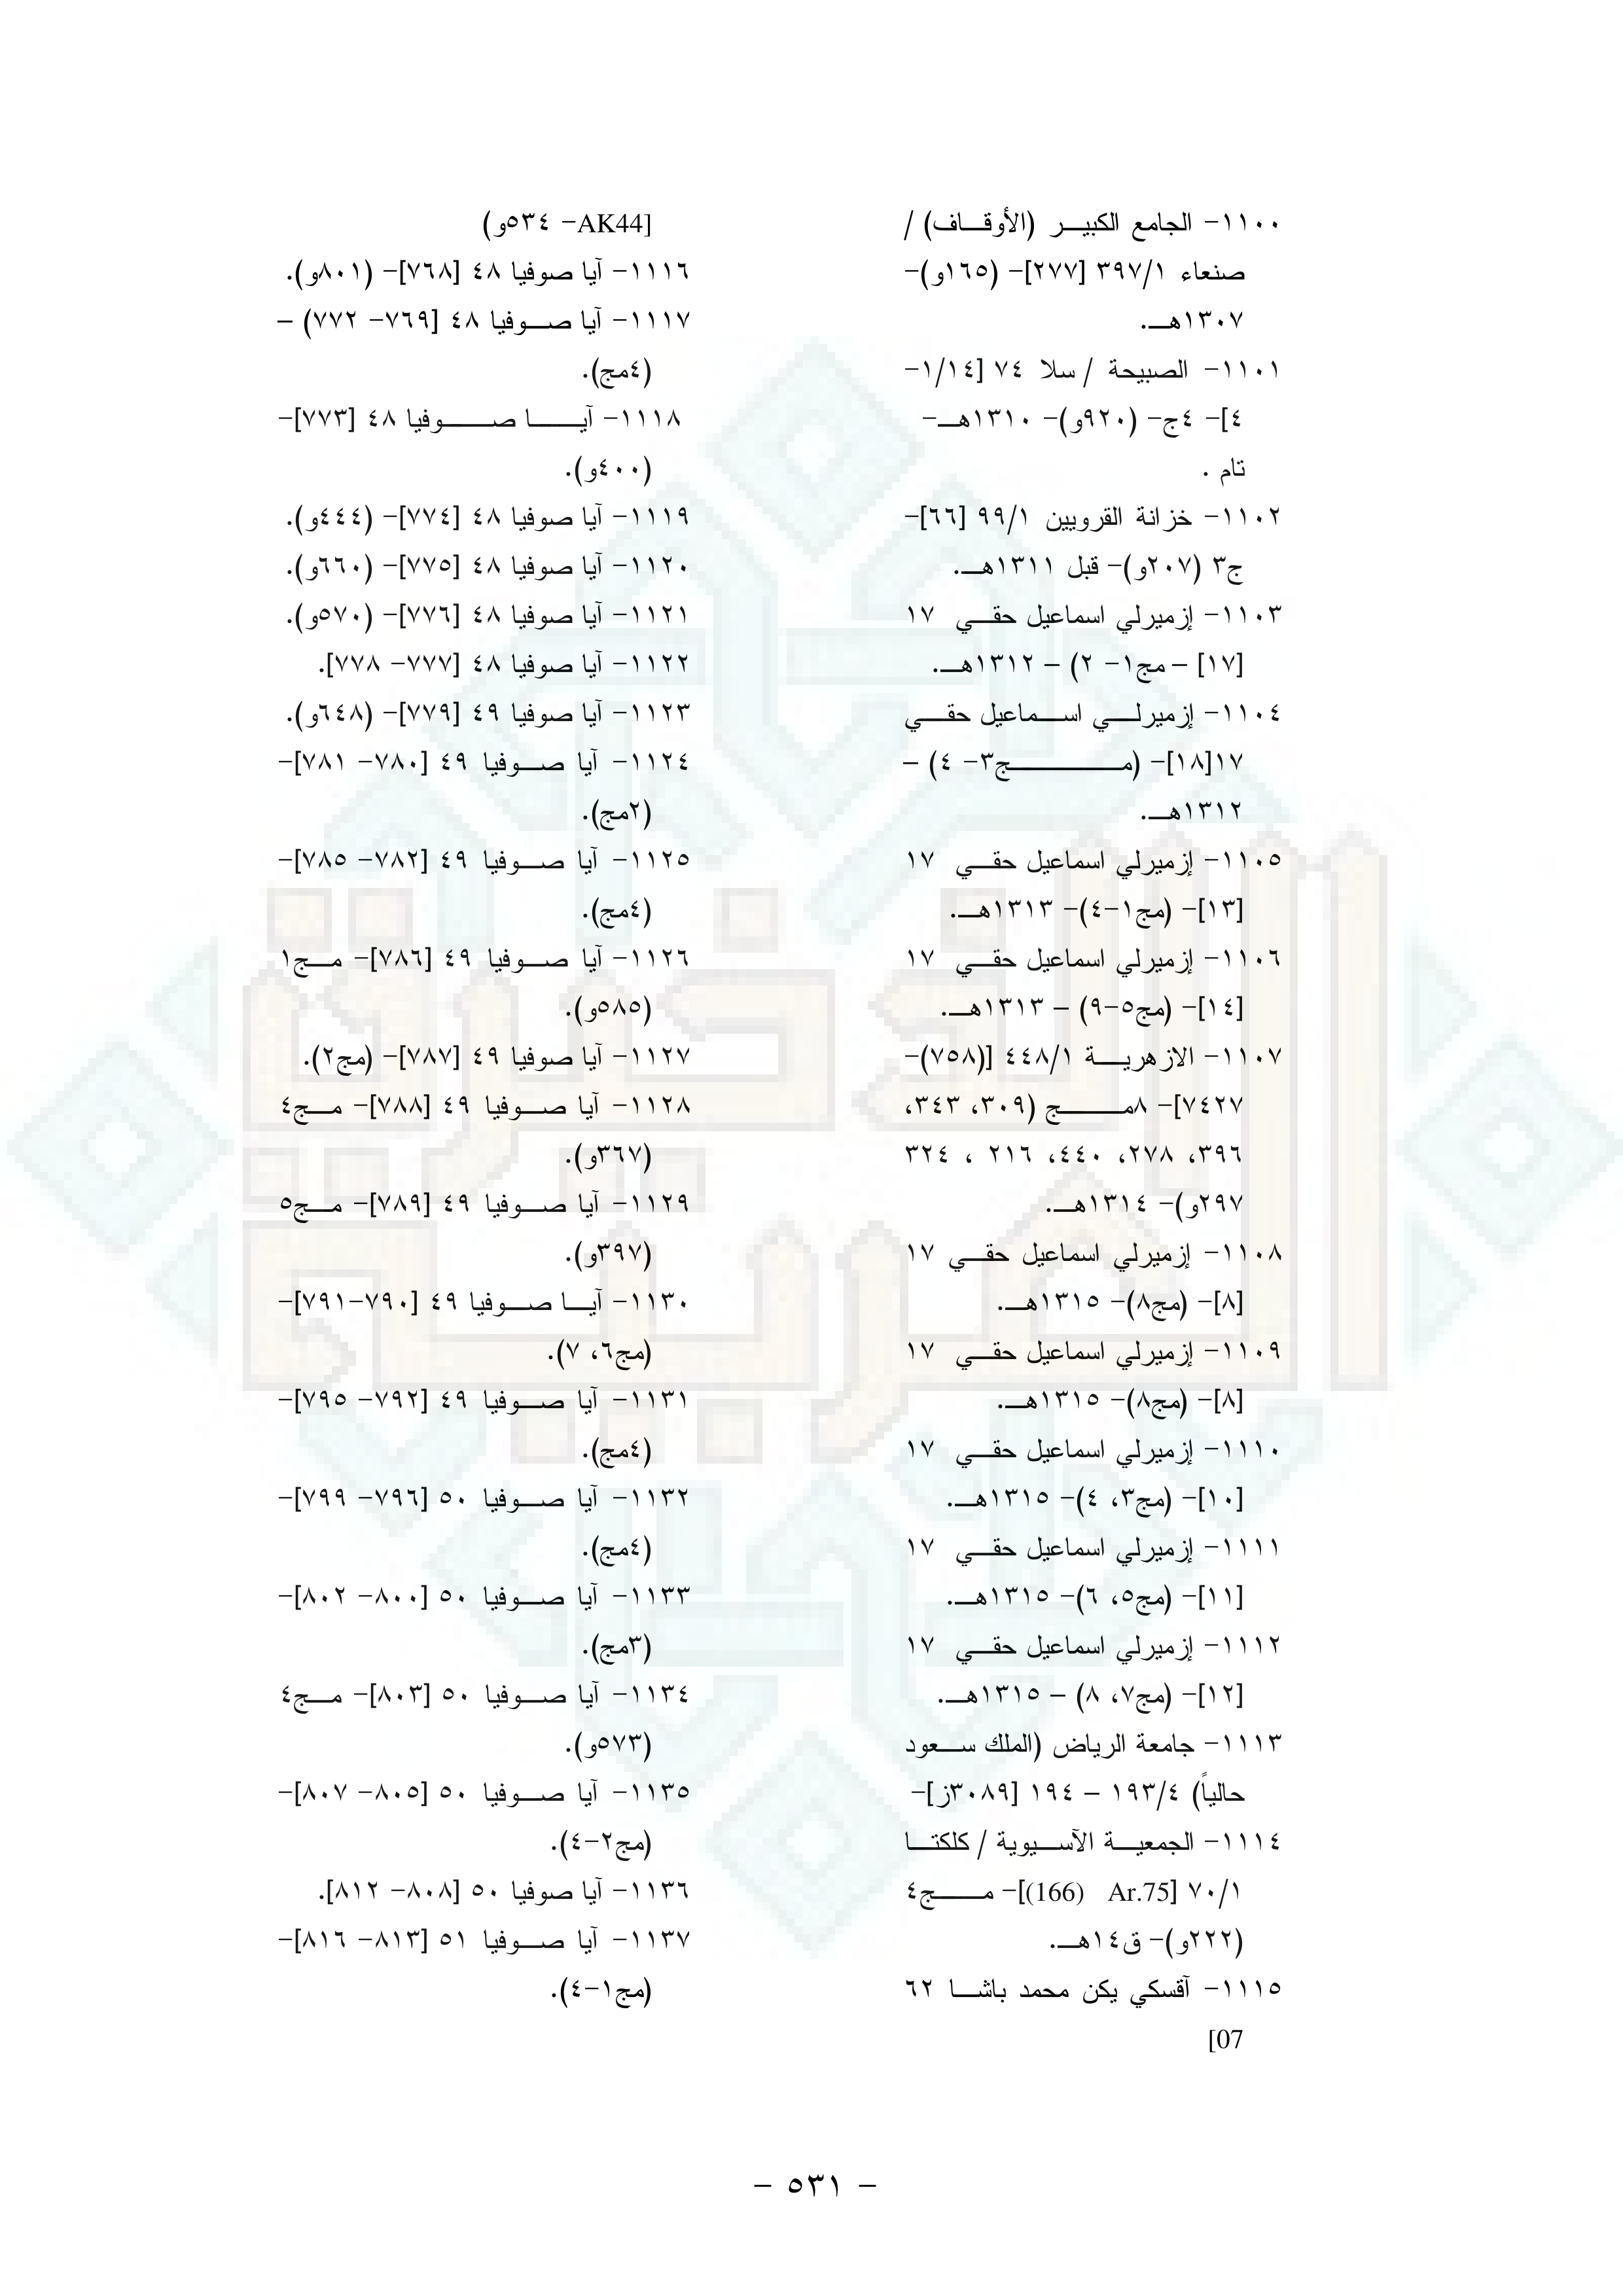 ١١٠٠- الجامع الكبيـر (الأوقـاف) /
صنعاء ٣٩٧/١ [٢٧٧]- (١٦٥و)-
١٣٠٧هـ.
١١٠١- الصبيحة / سلا ٧٤ [١/١٤-
٤]- ٤ج- (٩٢٠و)- ١٣١٠هـ-
تام .
١١٠٢- خزانة القرويين ٩٩/١ [٦٦]-
ج٣ (٢٠٧و)- قبل ١٣١١هـ.
١١٠٣- إزميرلي اسماعيل حقـي ١٧
[١٧] – مج١- ٢) – ١٣١٢هـ.
١١٠٤- إزميرلـي اسـماعيل حقـي
١٧[١٨]- (مـج٣- ٤) –
١٣١٢هـ.
١١٠٥- إزميرلي اسماعيل حقـي ١٧
[١٣]- (مج١-٤)- ١٣١٣هـ.
١١٠٦- إزميرلي اسماعيل حقـي ١٧
[١٤]- (مج٥-٩) – ١٣١٣هـ.
١١٠٧- الازهريـة ٤٤٨/١ [(٧٥٨)-
٧٤٢٧]- ٨مـج (٣٠٩، ٣٤٣،
٣٩٦، ٢٧٨، ٤٤٠، ٢١٦ ، ٣٢٤
٢٩٧و)- ١٣١٤هـ.
١١٠٨- إزميرلي اسماعيل حقـي ١٧
[٨]- (مج٨)- ١٣١٥هـ.
١١٠٩- إزميرلي اسماعيل حقـي ١٧
[٨]- (مج٨)- ١٣١٥هـ.
١١١٠- إزميرلي اسماعيل حقـي ١٧
[١٠]- (مج٣، ٤)- ١٣١٥هـ.
١١١١- إزميرلي اسماعيل حقـي ١٧
[١١]- (مج٥، ٦)- ١٣١٥هـ.
١١١٢- إزميرلي اسماعيل حقـي ١٧
[١٢]- (مج٧، ٨) – ١٣١٥هـ.
١١١٣- جامعة الرياض (الملك سـعود
حالياً) ١٩٣/٤ – ١٩٤ [٣٠٨٩ز]-
١١١٤- الجمعيـة الآسـيوية / كلكتـا
٧٠/١ [Ar.75 (166)]- مـج٤
(٢٢٢و)- ق١٤هـ.
١١١٥- آقسكي يكن محمد باشـا ٦٢
[07
AK44]- ٥٣٤و)
١١١٦- آيا صوفيا ٤٨ [٧٦٨]- (٨٠١و).
١١١٧- آيا صـوفيا ٤٨ [٧٦٩- ٧٧٢) –
(٤مج).
١١١٨- آيـا صـوفيا ٤٨ [٧٧٣]-
(٤٠٠و).
١١١٩- آيا صوفيا ٤٨ [٧٧٤]- (٤٤٤و).
١١٢٠- آيا صوفيا ٤٨ [٧٧٥]- (٦٦٠و).
١١٢١- آيا صوفيا ٤٨ [٧٧٦]- (٥٧٠و).
١١٢٢- آيا صوفيا ٤٨ [٧٧٧- ٧٧٨].
١١٢٣- آيا صوفيا ٤٩ [٧٧٩]- (٦٤٨و).
١١٢٤- آيا صـوفيا ٤٩ [٧٨٠- ٧٨١]-
(٢مج).
١١٢٥- آيا صـوفيا ٤٩ [٧٨٢- ٧٨٥]-
(٤مج).
١١٢٦- آيا صـوفيا ٤٩ [٧٨٦]- مـج١
(٥٨٥و).
١١٢٧- آيا صوفيا ٤٩ [٧٨٧]- (مج٢).
١١٢٨- آيا صـوفيا ٤٩ [٧٨٨]- مـج٤
(٣٦٧و).
١١٢٩- آيا صـوفيا ٤٩ [٧٨٩]- مـج٥
(٣٩٧و).
١١٣٠- آيـا صـوفيا ٤٩ [٧٩٠-٧٩١]-
(مج٦، ٧).
١١٣١- آيا صـوفيا ٤٩ [٧٩٢- ٧٩٥]-
(٤مج).
١١٣٢- آيا صـوفيا ٥٠ [٧٩٦- ٧٩٩]-
(٤مج).
١١٣٣- آيا صـوفيا ٥٠ [٨٠٠- ٨٠٢]-
(٣مج).
١١٣٤- آيا صـوفيا ٥٠ [٨٠٣]- مـج٤
(٥٧٣و).
١١٣٥- آيا صـوفيا ٥٠ [٨٠٥- ٨٠٧]-
(مج٢-٤).
١١٣٦- آيا صوفيا ٥٠ [٨٠٨- ٨١٢].
١١٣٧- آيا صـوفيا ٥١ [٨١٣- ٨١٦]-
(مج١-٤).
- ٥٣١ -